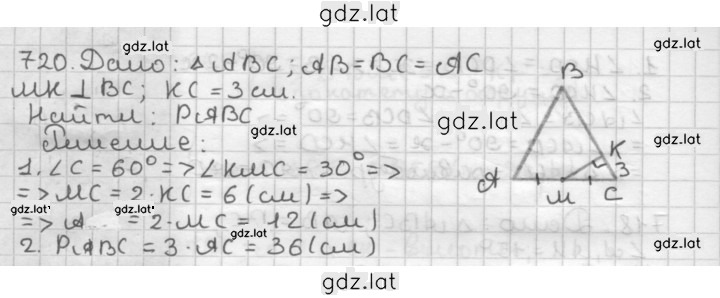 gdz.lat
720. Дано: △ABC; AB=BC=AC
MK ⊥ BC; KC = 3 см.
Найти: P△ABC
Решение:
1. ∠C = 60° => ∠KMC = 30° =>
=> MC = 2·KC = 6 (см) =>
=> A = 2·MC = 12 (см)
2. P△ABC = 3·AC = 36 (см)
B
K
3
A
M
C
gdz.lat
gdz.lat
gdz.lat
gdz.lat
gdz.lat
gdz.lat
gdz.lat
gdz.lat
gdz.lat
gdz.lat
gdz.lat